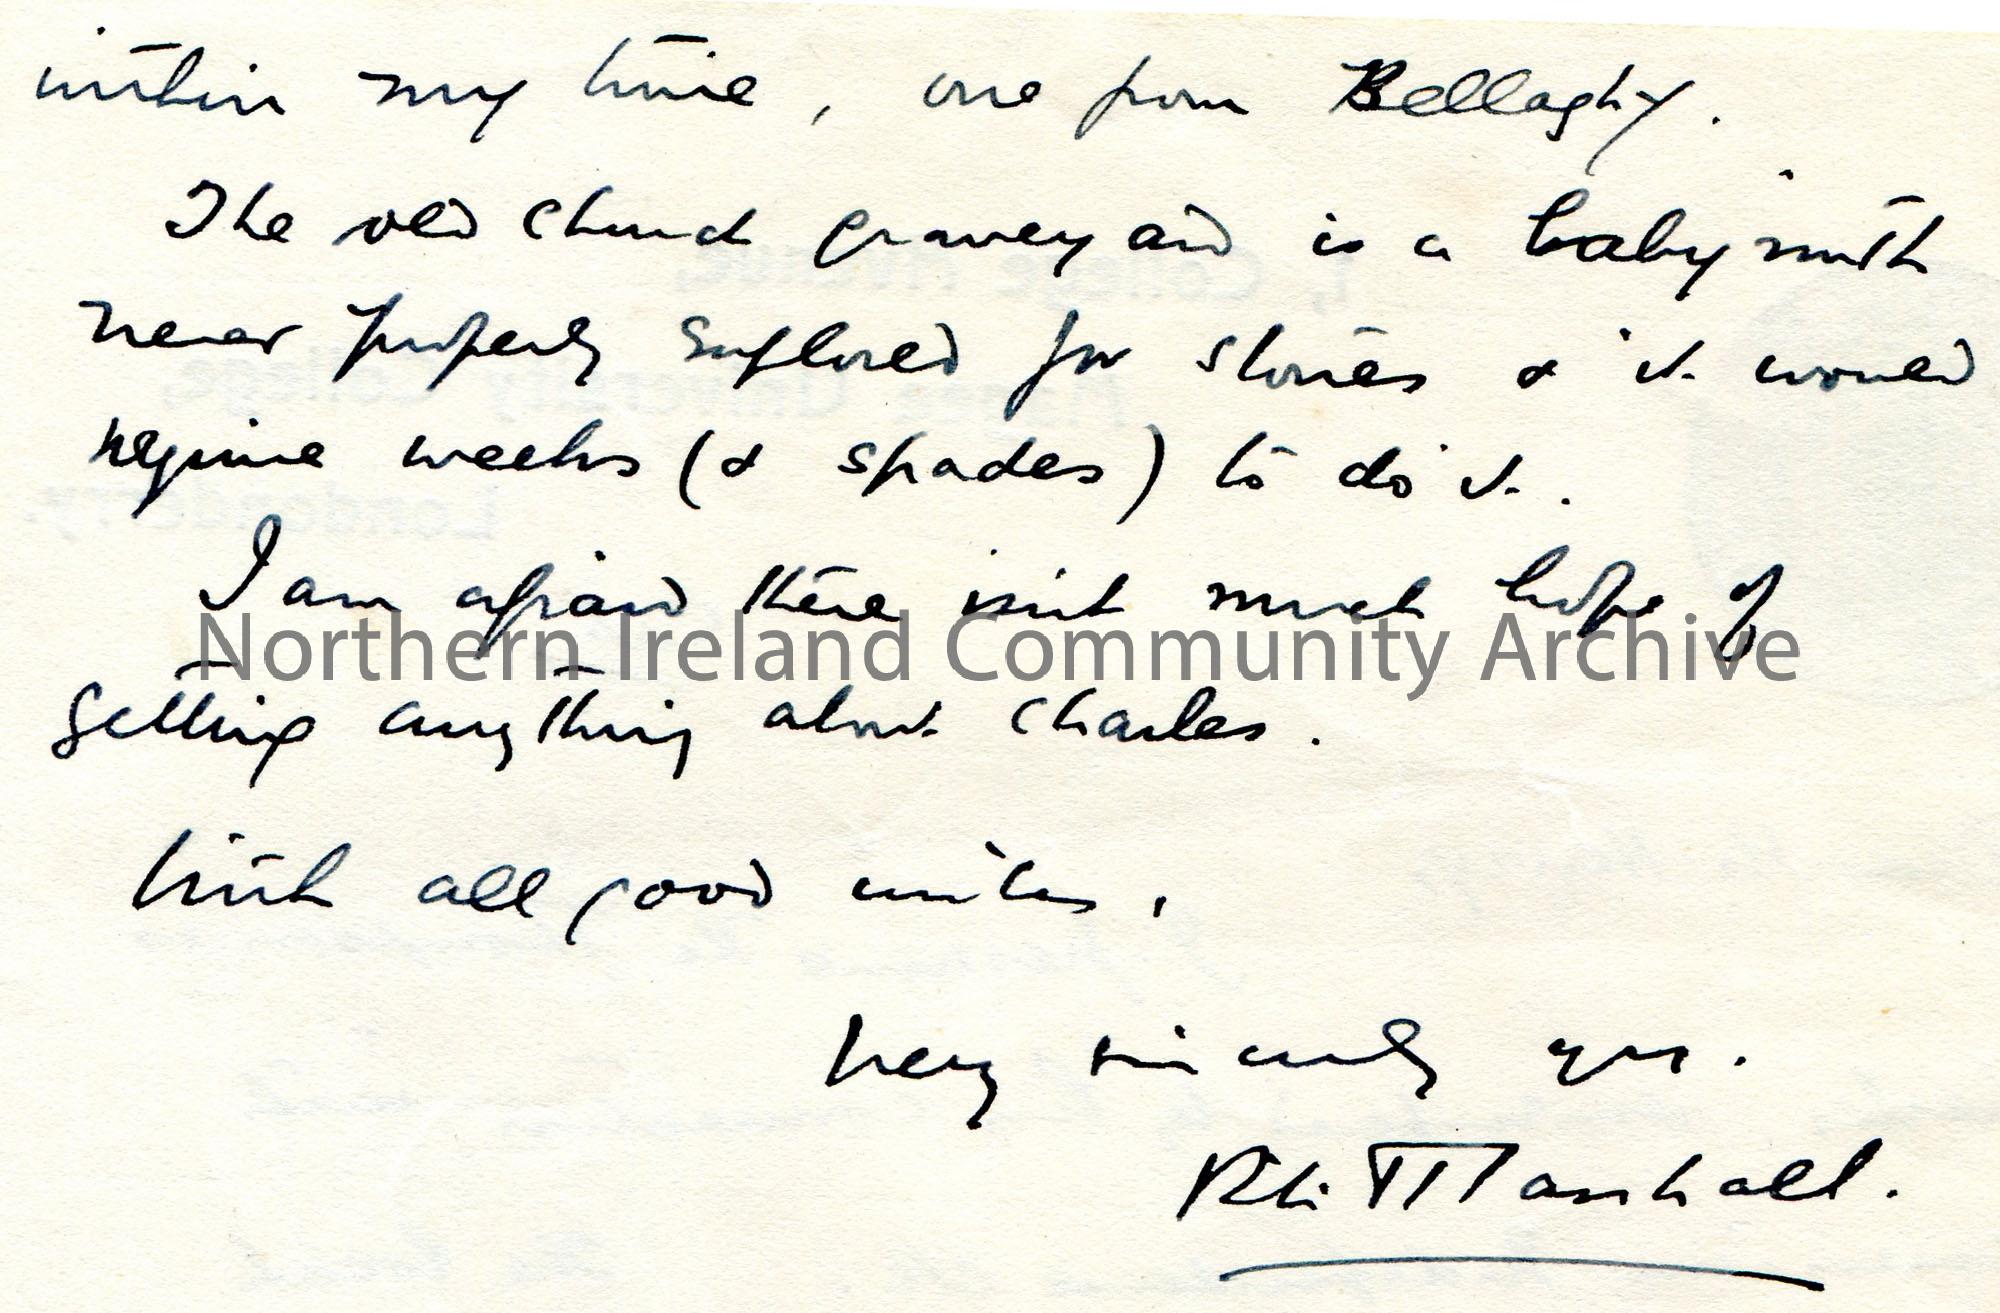 within my time, one from Bellaghy.
The old church graveyard is a labyrinth
never properly explored for stones & it would
require weeks (& spades) to do it.
I am afraid there isn't much hope of
Northern Ireland Community Archive
getting anything about Charles.
With all good wishes,
Very sincerely yrs.
Marshall.